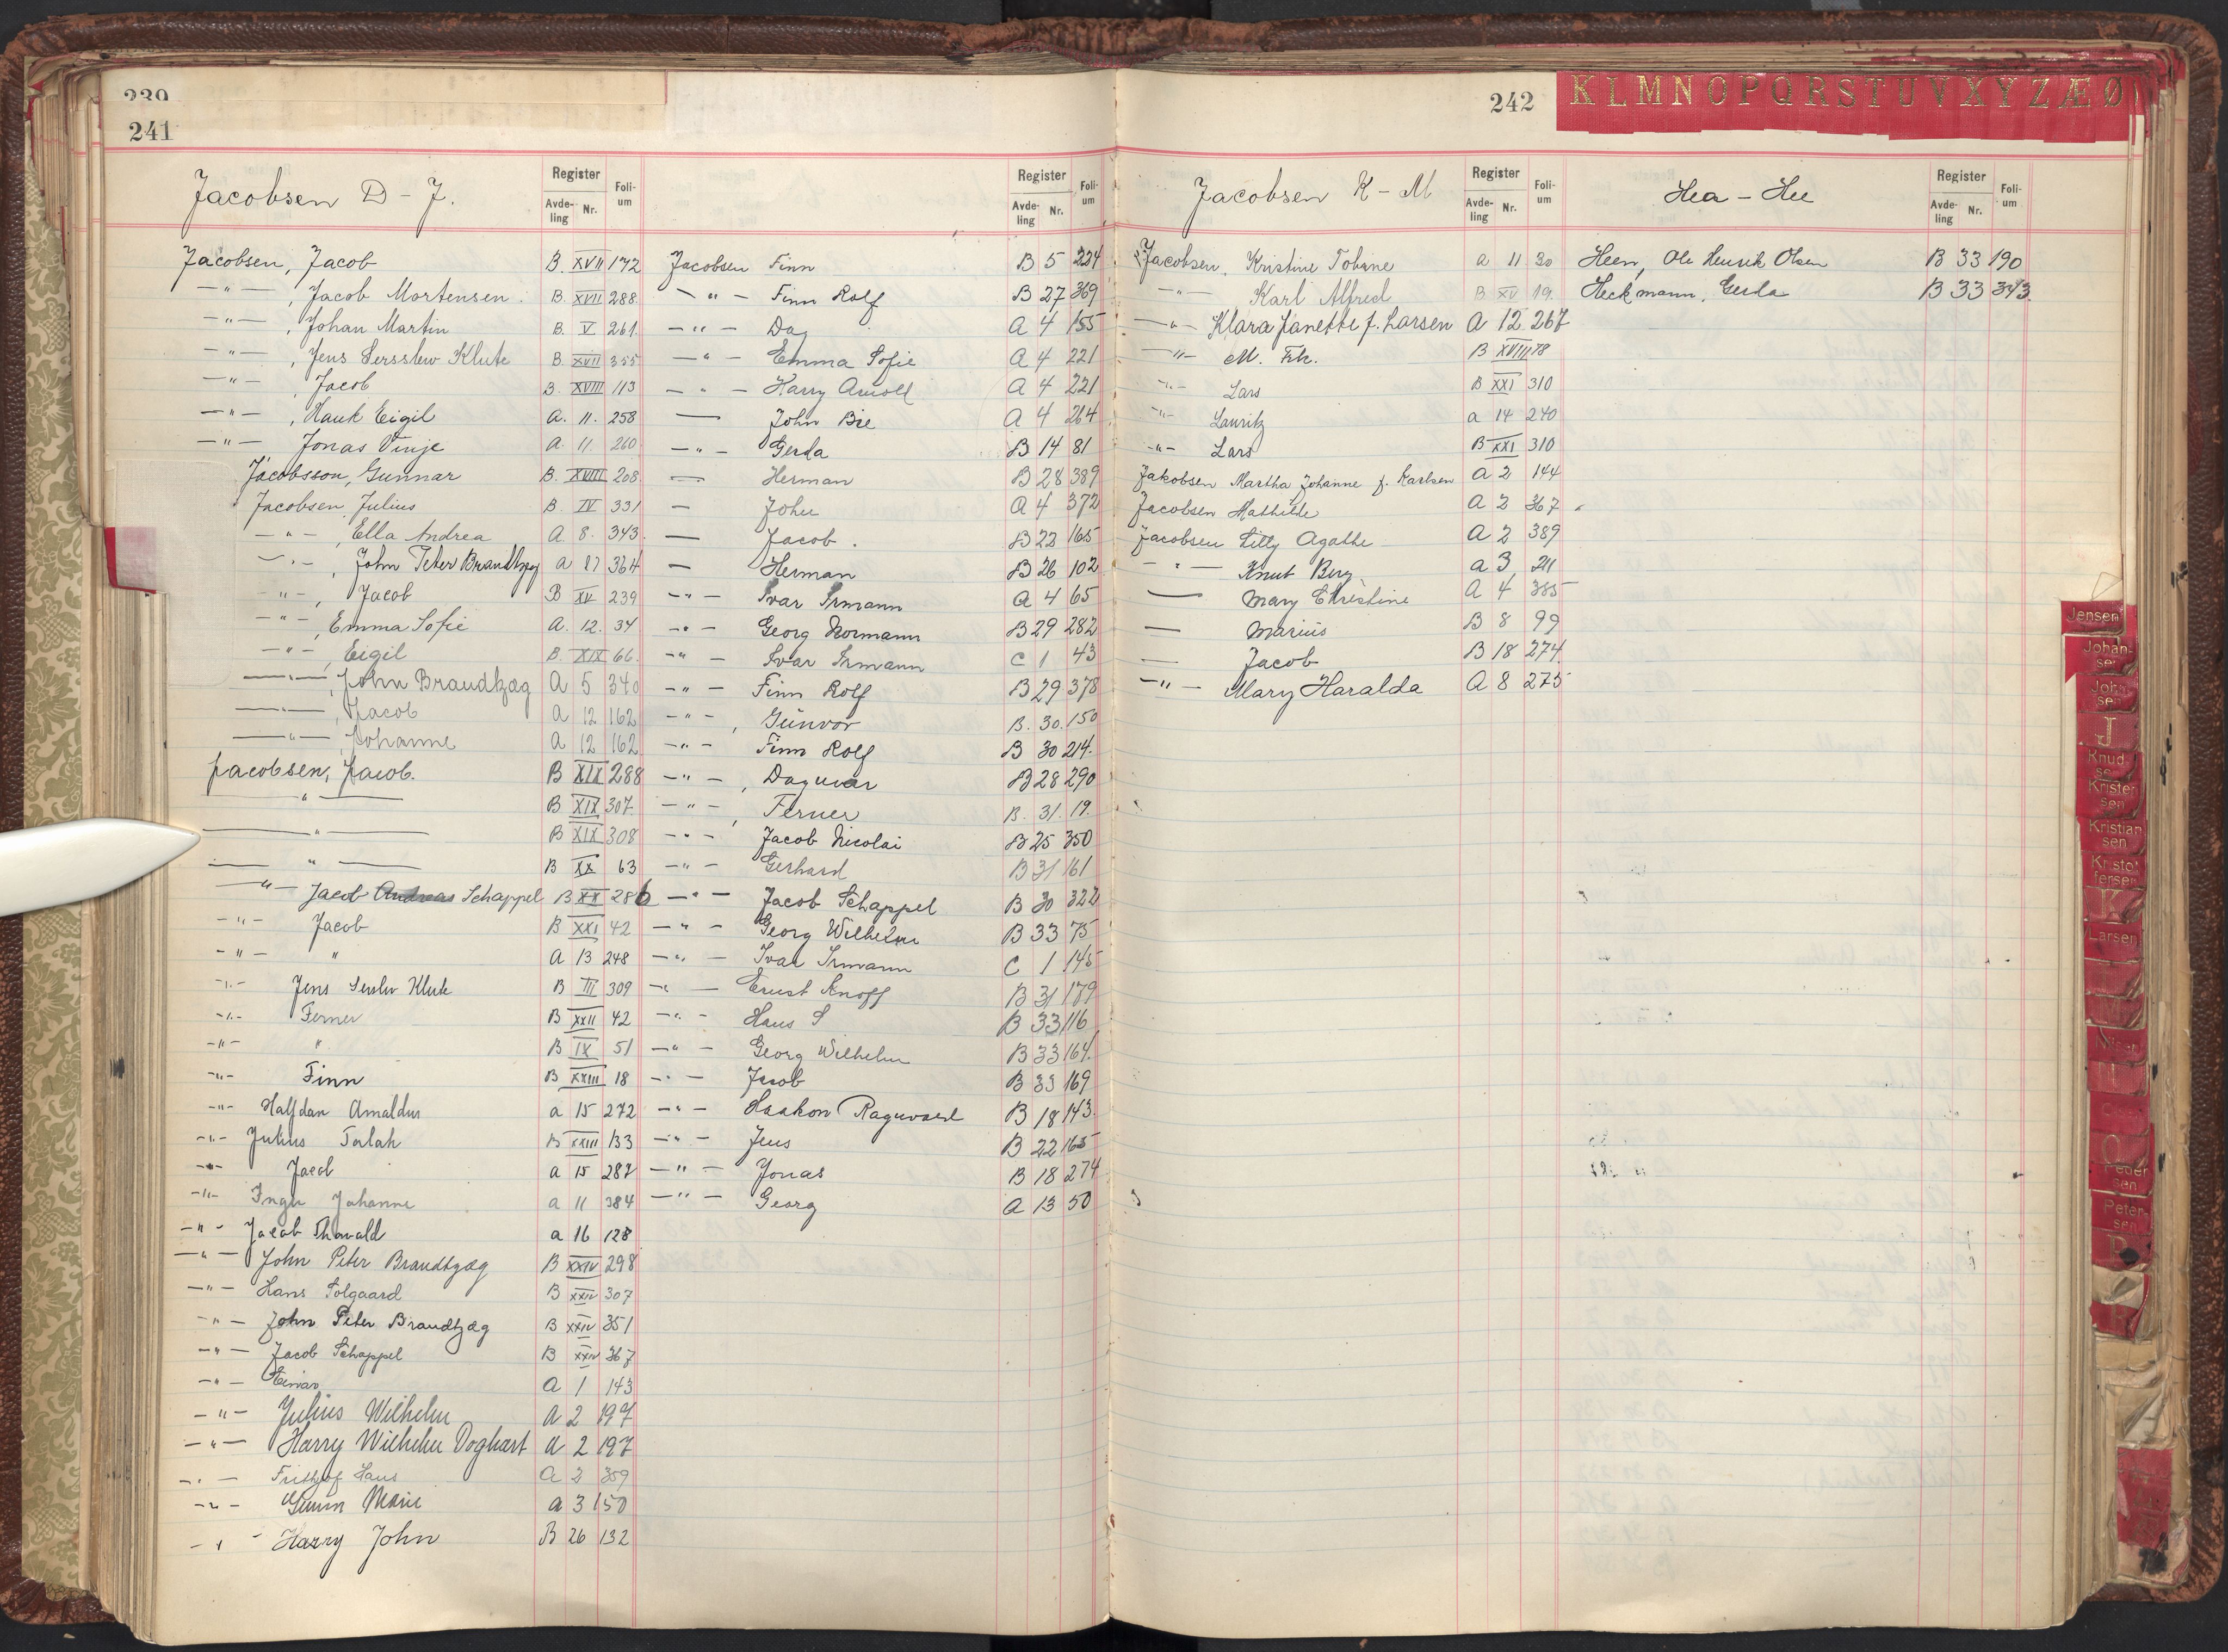 239
241
Jacobsen D - J.
Register
Avde-ling Nr.
Foli-um
Jacobsen, Jacob B. XVII 172
-"- , Jacob Mortensen. B. XVII 288
-"- , Johan Martin B. V 261
-"- , Jens Klute B. XVII 355
-"- , Jacob B. XVIII 113
-"- , Hauk Eigil A. 11. 258
-"- Jonas Vinje A. 11. 260
Jacobsson, Gunnar B. XVIII 208
Jacobsen, Julius B. IV 331
-"- , Ella Andrea A 8. 343
-"- , John Peter Brandtzæg A 364
-"- , Jacob B XV 239
-"- , Emma Sofie A. 12. 34
-"- , Eigil B. XIX 66.
-"- , John Brandtzæg A 5 340
-"- , Jacob A 12 162
-"- , Johanne A 12 162
Jacobsen, Jacob. B XIX 288
-"- B XIX 307.
-"- B XIX 308
-"- B XX 63
-"- Jacob Andreas Schappel B XX 286
-"- Jacob B XXI 42
-"- " A 13 248
-"- Jens Klute B III 309
-"- Ferner B XXII 42
-"- " B IX 51
-"- Finn B XXIII 18
-"- Halfdan Arnaldus a 15 272
-"- Julius Falah B XXIII 133
-"- Jacob a 15 287
-"- Inger Johanne a 11 384
-"- Jacob Thorvald a 16 128
-"- John Peter Brandtzæg B XXIV 298
-"- Hans Solgaard B XXIV 307
-"- John Peter Brandtzæg B XXIV 351
-"- Jacob Schappel B XXIV 367
-"- Einar A 1 143
-"- Julius Wilhelm A 2 197
-"- Harry Wilhelm Doghart A 2 197
-"- Frithjof Hans A 2 359
-"- Marie a 3 150
-"- Harry John B 26 132
Register
Avde-ling Nr.
Foli-um
Jacobsen Finn B 5 224
-"- Finn Rolf B 27 369
-"- Dag A 4 155
-"- Emma Sofie A 4 221
-"- Harry Arnold A 4 221
— John Bie A 4 264
-"- Gerda B 14 81
— Herman B 28 389
— John A 4 372
— Jacob. B 22 165
— Herman B 26 102
-"- Ivar Irmann A 4 65
-"- Georg Normann B 29 282
-"- Ivar Irmann C 1 43
-"- Finn Rolf B 29 378
-"- , Gunvor B. 30. 150
-"- Finn Rolf B 30 214.
-"- , Dagmar B 28 290
-"- , Ferner B. 31. 19.
-"- Jacob Nicolai B 25 350
-"- Gerhard B 31 161
-"- Jacob Schappel B 30 322
-"- Georg Wilhelm B 33 75
-"- Ivar Irmann C 1 145
-"- Ernst Knoff B 31 179
-"- Hans S B 33 116
-"- Georg Wilhelm B 33 164.
-"- Jacob B 33 169
-"- Haakon Ragnvald B 18 143.
-"- Jens B 22 165
-"- Jonas B 18 274
-"- Georg A 13 50
242
K L M N O P Q R S T U V X Y Z Æ Ø
Jacobsen K - M
Register
Avde-ling Nr.
Foli-um
Jacobsen, Kristine Tobine a 11 30
-"- Karl Alfred B XV 19.
-"- Klara Janette f. Larsen A 12 267
-"- M. Frk. B XVIII 78
-"- Lars B XXI 310
-"- Lauritz a 14 240
-"- Lars B XXI 310
Jakobsen Martha Johanne f. Karlsen A 2 144
Jacobsen Mathilde A 2 367
Jacobsen Lilly Agathe A 2 389
-"- Knut Berg a 3 211
— Mary Christine A 4 385
— Marius B 8 99
— Jacob B 18 274.
-"- Mary Haralda A 8 275
Hea - Hee
Register
Avde-ling Nr.
Foli-um
Heen, Ole Henrik Olsen B 33 190
Heckmann, Gerda B 33 343.
Jensen
Johan-sen
John-sen
J
Knud-sen
Kristen-sen
Kristian-sen
Kristof-fersen
K
Larsen
O
Peder-sen
Peter-sen
P